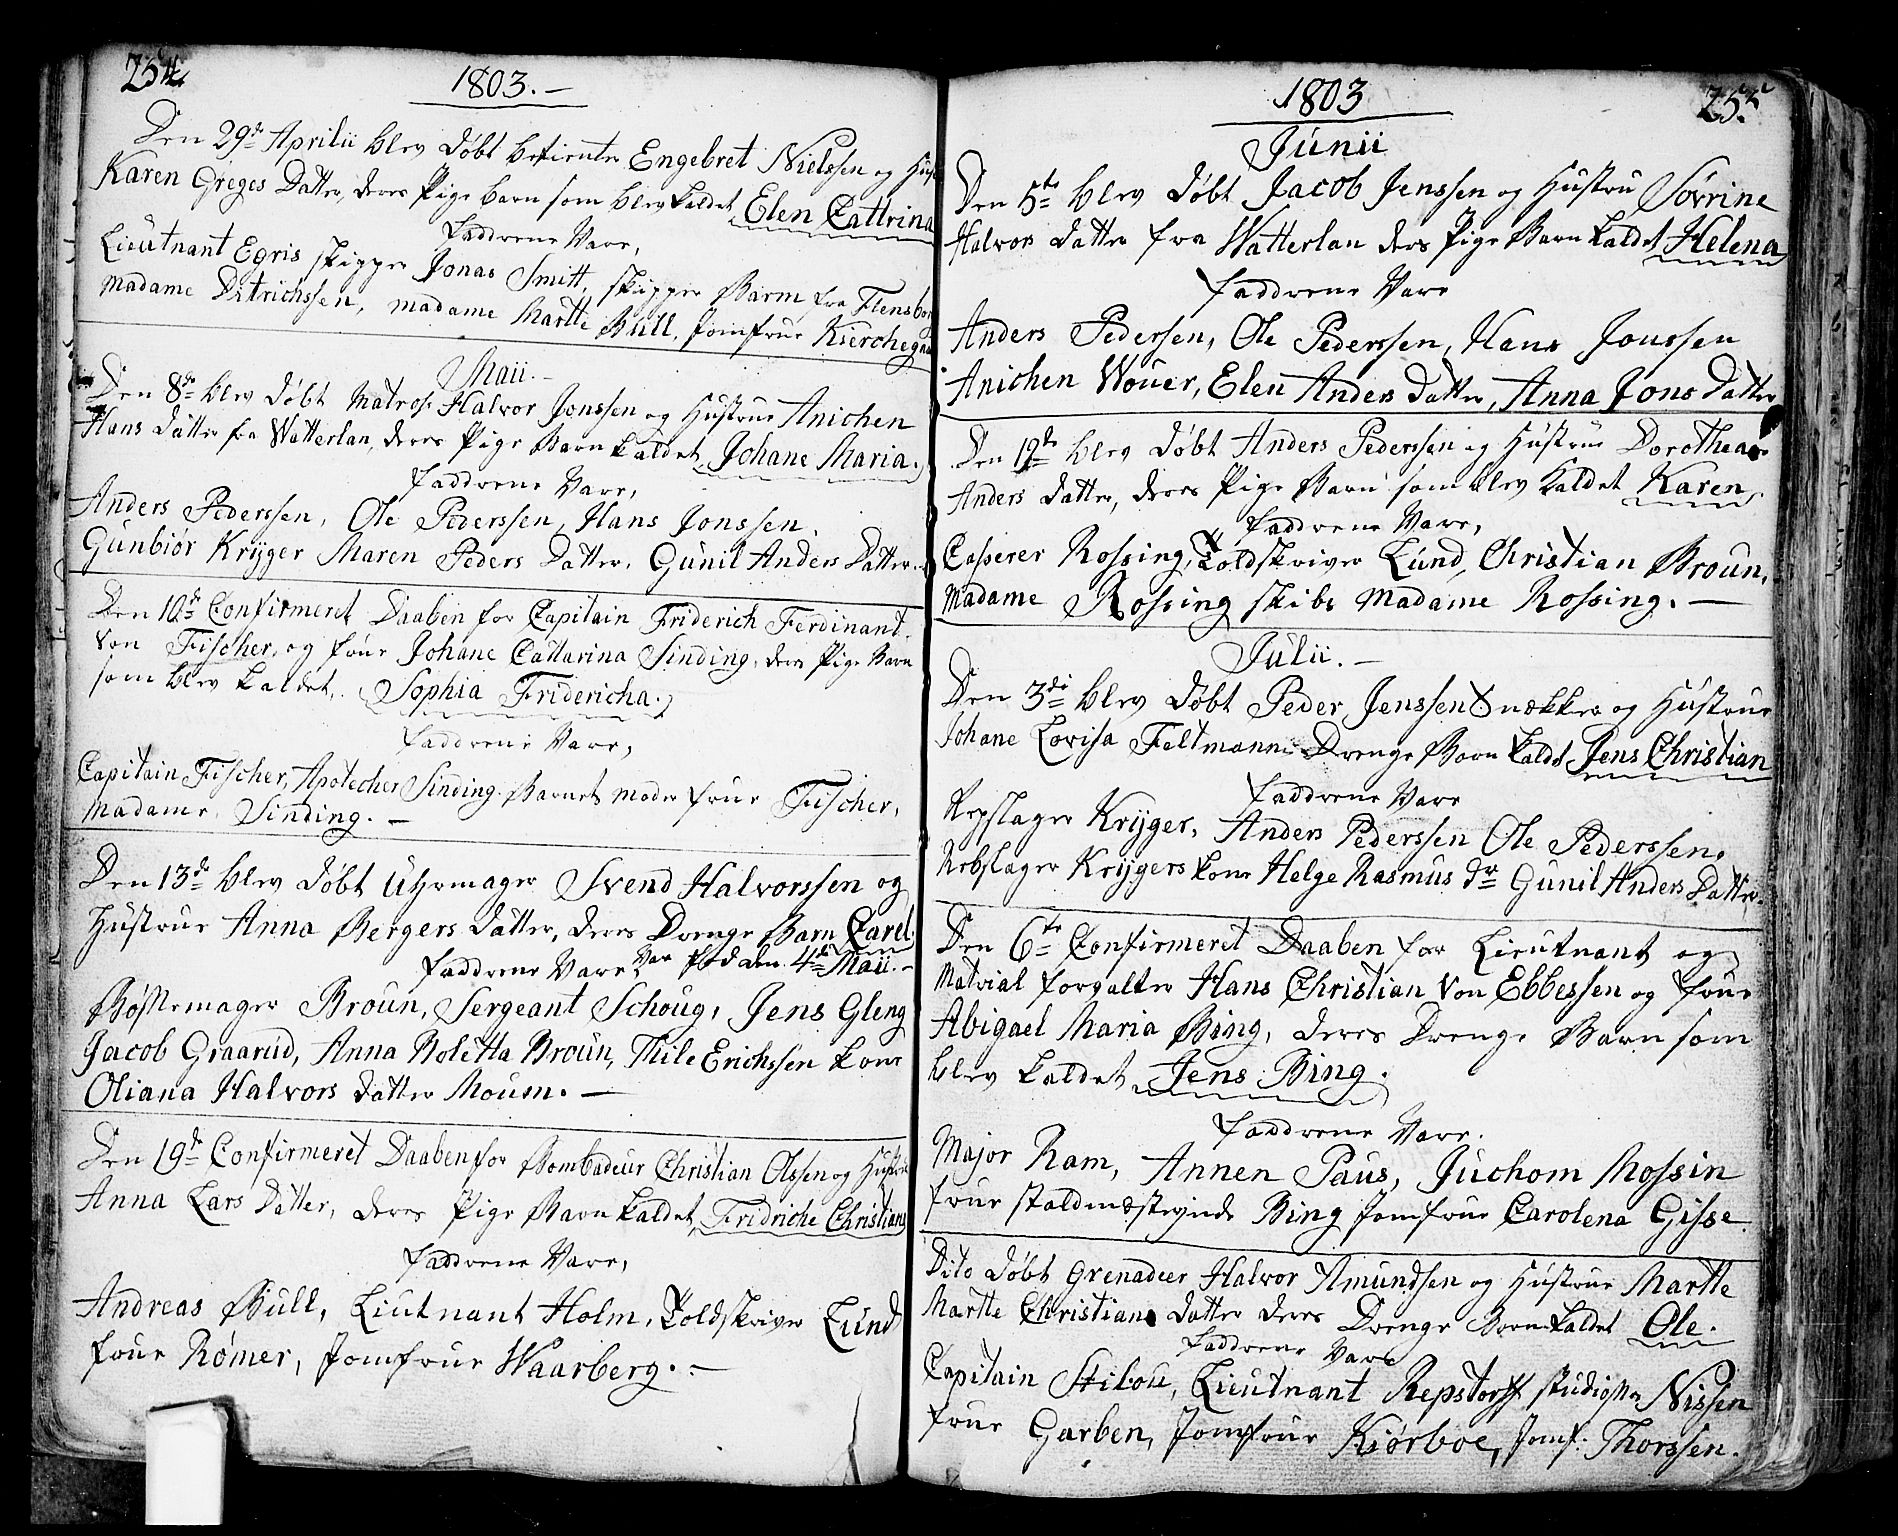 254
1803.-
Den 29de Aprilii blev döbt betienter Engebret Nielssen og Hust
Karen Greges Datter, deres Pige barn som blev kaldet Elen Cattrina
faddrene Vare,
Lieutnant Egris skipper Jonas Smitt, skipper Barm fra Flensborg
Madame Ditrichssen, madame Martte Bull, Jomfrue Kierchegaa
Maii.-
Den 8de blev döbt Matros Halvor Jonssen og Hustrue Anichen
Hans Datter fra Watterlan, deres Pige Barn kaldet Johane Maria.
faddrene Vare,
Anders Pederssen, Ole Pederssen, Hans Jonssen.
Gunbiör Kryger Maren Peders Datter, Gunil Anders Datter.
Den 10de Confirmeret Daaben for Capitain Friderich Ferdinant
von Fischer, og frue Johane Cattarina Sinding, deres Pige Barn
som blev kaldet, Sophia Fridericha.
faddrene Vare,
Capitain Fischer, Apotecher Sinding. Barnets moder frue Fischer,
Madame Sinding.-
Den 13de blev döbt Uhrmager Svend Halvorssen og
Hustrue Anna Bergers datter, deres Drenge Barn Carel
faddrene Vare, Var föd den 4de Maii.-
Bössemager Broun, Sergeant Schoug, Jens Gleng
Jacob Graarud, Anna Noletta Broun, Thile Erichssen kone
Oliana Halvors datter Moum.-
Den 19de Confirmeret Daaben for Bombadeur Christian Olssen og Hustrue
Anna Lars Datter, deres Pige Barn kaldet, Fridriche Christian
faddrene Vare,
Andreas Bull, Liutnant Holm, Toldskriver Lund
frue Rømer, Jomfrue Waarberg.-
1803
255
Junii
Den 5te blev döbt Jacob Jenssen og Hustru Sövrine
Halvors datter fra Watterlan ders Pige Barn kaldet Helena
faddrene Vare
Anders Pedersen, Ole Pederssen, Hans Jonssen
Anichen Wouer, Elen Anders Datter, Anna Jons Datter
Den 19de blev döbt Anders Pederssen og Hustrue Dorothea
Anders datter, deres Pige Barn som blev kaldet Karen
faddrene Vare,
Casserer Rossing, Toldskriver Lund, Christian Broun,
Madame Rossing skibs Madame Rossing.-
Julii.-
Den 3die blev döbt Peder Jenssen Snækker og Hustrue
Johane Lovisa Feltmann Drenge Barn kaldet Jens Christian
faddrene Vare
Repslager Kryger, Anders Pederssen Ole Pederssen,
Rebslager Krygers kone Helge Rasmus dr Gunil Anders Datter.
Den 6te Confirmeret Daaben for Lieutnant og
Matrial forvalter Hans Christian Von Ebbessen og frue
Abigael Maria Bing, deres Drenge Barn som
blev kaldet Jens Bing.
faddrene Vare.
Major Ram, Annen Paus, Juchom Mossin
frue staldmesterinde Bing Jomfrue Carolena Gisse.
Dito döbt Grenadeer Halvor Amundsen og Hustrue Martte
Martte Christians datter deres Drenge Barn kaldet Ole.
faddrene Vare
Capitain Stibolt, Lieutnant Repstorff studioste Nissen
frue Garben, Jomfrue Kiørboe, Jomf: Thorssen.